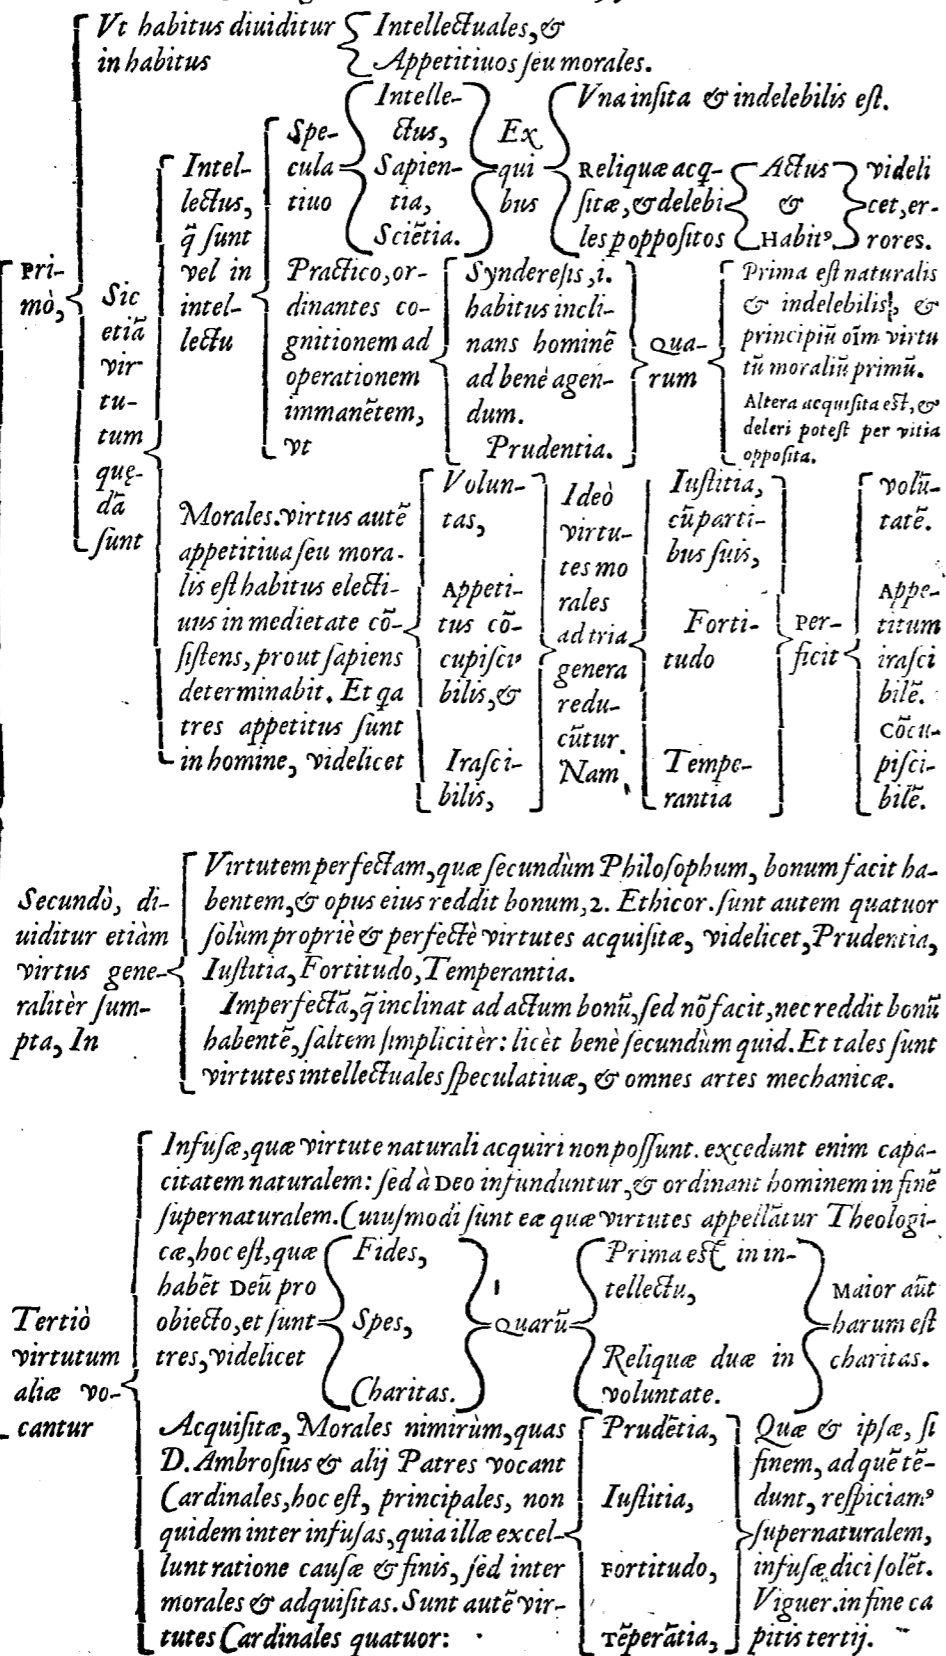 Vt habitus diuiditur
in habitus
Intellectuales, &
Appetitiuos ſeu morales.
Pri-
mò,
Sic
etiã
vir
tu-
tum
quę-
dã
ſunt
Intel-
lectus,
q̃ ſunt
vel in
intel-
lectu
Spe-
cula
tiuo
Intelle-
ctus,
Sapien-
tia,
Sciẽtia.
Ex
qui
bus
Vna inſita & indelebilis eſt.
Reliquæ acq-
ſitæ, & delebi
les p oppoſitos
Actus
&
Habitꝰ
videli
cet, er-
rores.
Practico, or-
dinantes co-
gnitionem ad
operationem
immanẽtem,
vt
Synderesis, i.
habitus incli-
nans hominẽ
ad benè agen-
dum.
Prudentia.
Qua-
rum
Prima eſt naturalis
& indelebilis, &
principiũ oĩm virtu
tũ moraliũ primũ.
Altera acquiſita eſt, &
deleri poteſt per vitia
oppoſita.
Morales. virtus autẽ
appetitiua ſeu mora-
lis eſt habitus electi-
uus in medietate cõ-
ſiſtens, prout ſapiens
determinabit. Et qa
tres appetitus ſunt
in homine, videlicet
Volun-
tas,
Appeti-
tus cõ-
cupiſci
bilis, &
Iraſci-
bilis,
Ideò
virtu-
tes mo
rales
ad tria
genera
redu-
cũtur.
Nam
Iuſtitia,
cũ parti-
bus ſuis,
Forti-
tudo
Tempe-
rantia
Per-
ficit
volũ-
tatẽ.
Appe-
titum
iraſci
bilẽ.
Cõcu-
piſci-
bilẽ.
Secundò, di-
uiditur etiàm
virtus gene-
ralitèr ſum-
pta, In
Virtutem perfectam, quæ ſecundùm Philoſophum, bonum facit ha-
bentem, & opus eius reddit bonum, 2. Ethicor. ſunt autem quatuor
ſolùm propriè & perfectè virtutes acquiſitæ, videlicet, Prudentia,
Iuſtitia, Fortitudo, Temperantia.
Imperfectã, q̃ inclinat ad actum bonũ, ſed nõ facit, nec reddit bonũ
habentẽ, ſaltem ſimplicitèr: licèt benè ſecundùm quid. Et tales ſunt
virtutes intellectuales ſpeculatiuæ, & omnes artes mechanicæ.
Tertiò
virtutum
aliæ vo-
cantur
Infuſæ, quæ virtute naturali acquiri non poſſunt. excedunt enim capa-
citatem naturalem: ſed à Deo infunduntur, & ordinant hominem in finẽ
ſupernaturalem. Cuiuſmodi ſunt eæ quæ virtutes appellãtur Theologi-
cæ, hoc eſt, quæ
habẽt Deũ pro
obiecto, et ſunt
tres, videlicet
Fides,
Spes,
Charitas.
Quarũ
Prima eſt in in-
tellectu,
Reliquæ duæ in
voluntate.
Maior aũt
harum eſt
charitas.
Acquiſitæ, Morales nimirùm, quas
D. Ambroſius & alij Patres vocant
Cardinales, hoc eſt, principales, non
quidem inter infuſas, quia illæ excel-
lunt ratione cauſæ & finis, ſed inter
morales & adquiſitas. Sunt autẽ vir-
tutes Cardinales quatuor:
Prudẽtia,
Iuſtitia,
Fortitudo,
Tẽperãtia,
Quæ & ipſæ, ſi
finem, ad quẽ tẽ-
dunt, reſpiciamꝰ
ſupernaturalem,
infuſæ dici ſolẽt.
Viguer. in fine ca
pitis tertij.